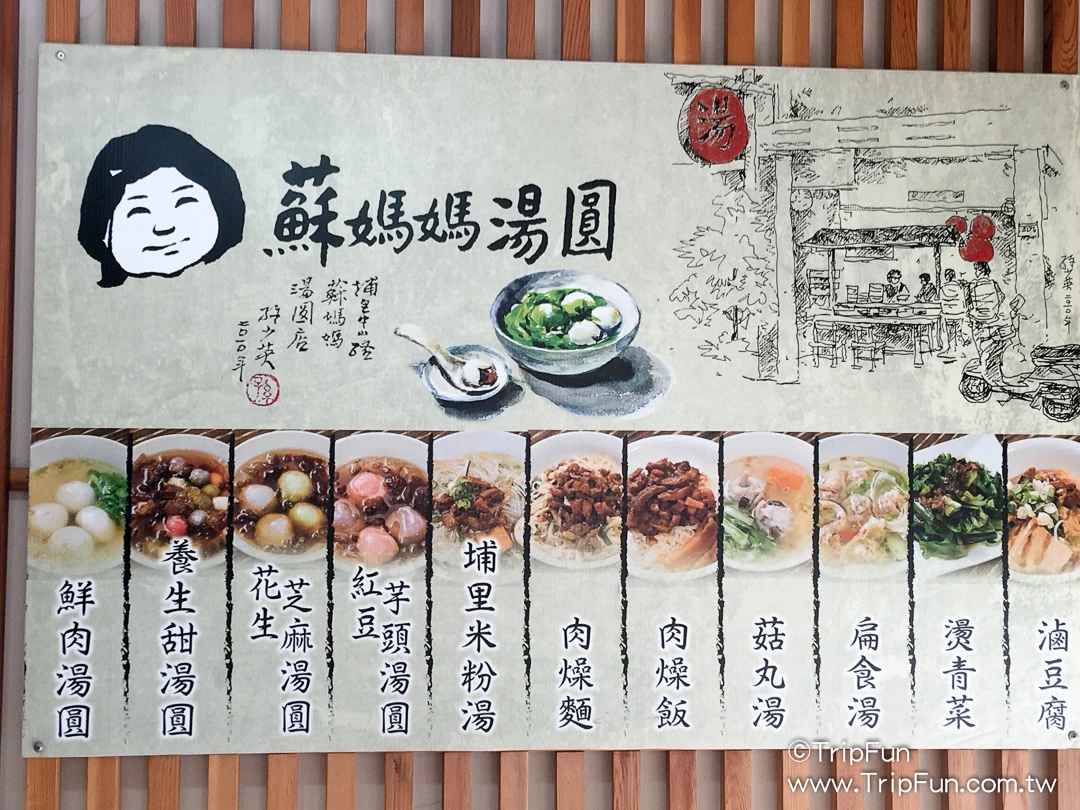 蘇媽媽湯圓
湯
蘇媽媽
湯圓店
二〇一〇年
鮮肉湯圓
養生甜湯圓
花生
芝麻湯圓
紅豆
芋頭湯圓
埔里米粉湯
肉燥麵
肉燥飯
菇丸湯
扁食湯
燙青菜
滷豆腐
©TripFun
www.TripFun.com.tw